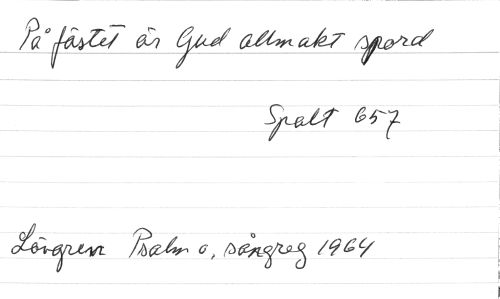 På fästet är Gud allmakt spord
Spalt 657
Lövgren Psalm o. sångreg 1964